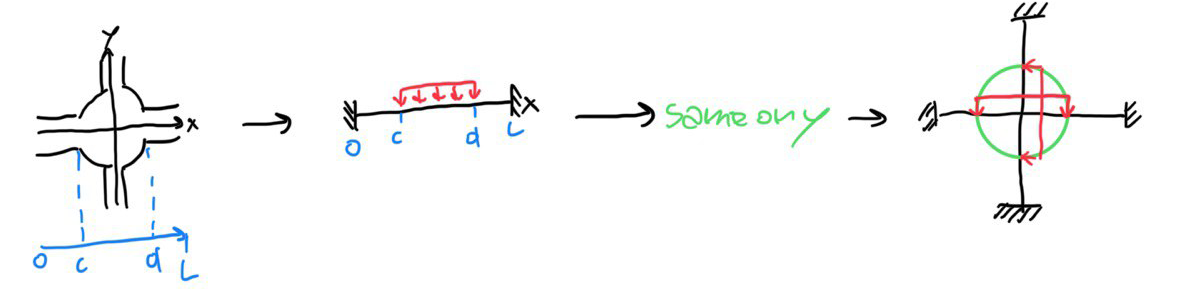 Y
x
O c d L
O c d L x
same on y